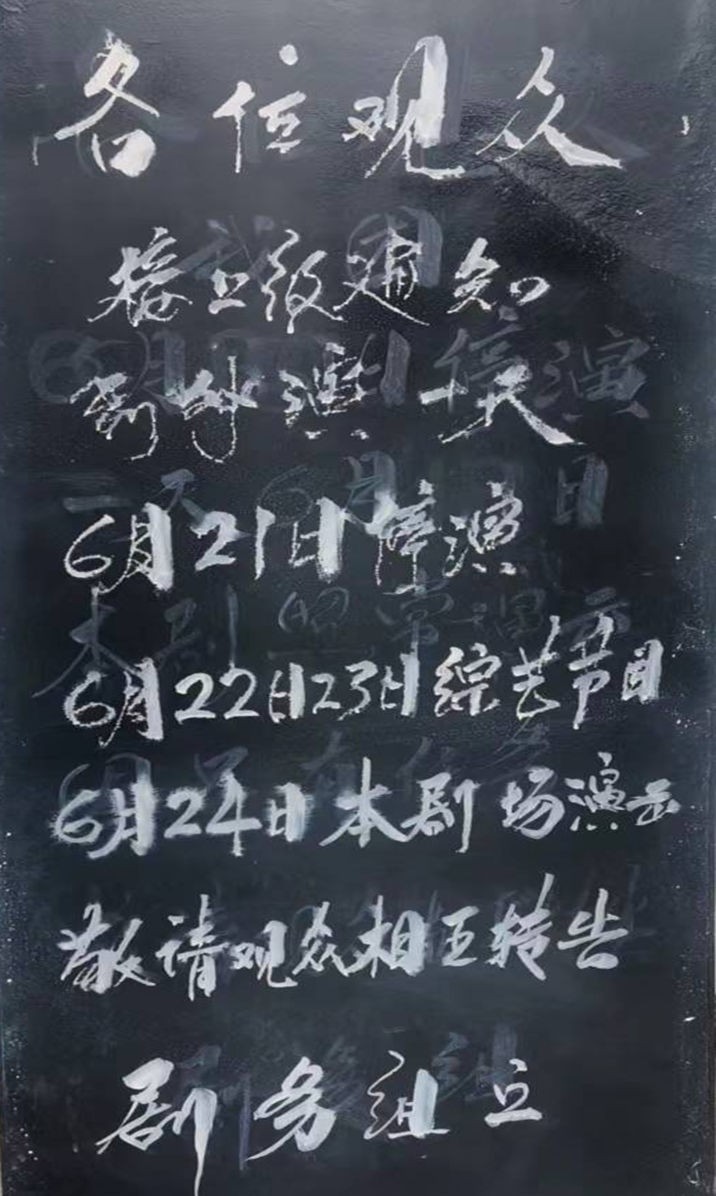 各位观众
接上级通知
剧外演一天
6月21日停演
6月22日23日综艺节目
6月24日本剧场演云
敬请观众相互转告
剧务组立